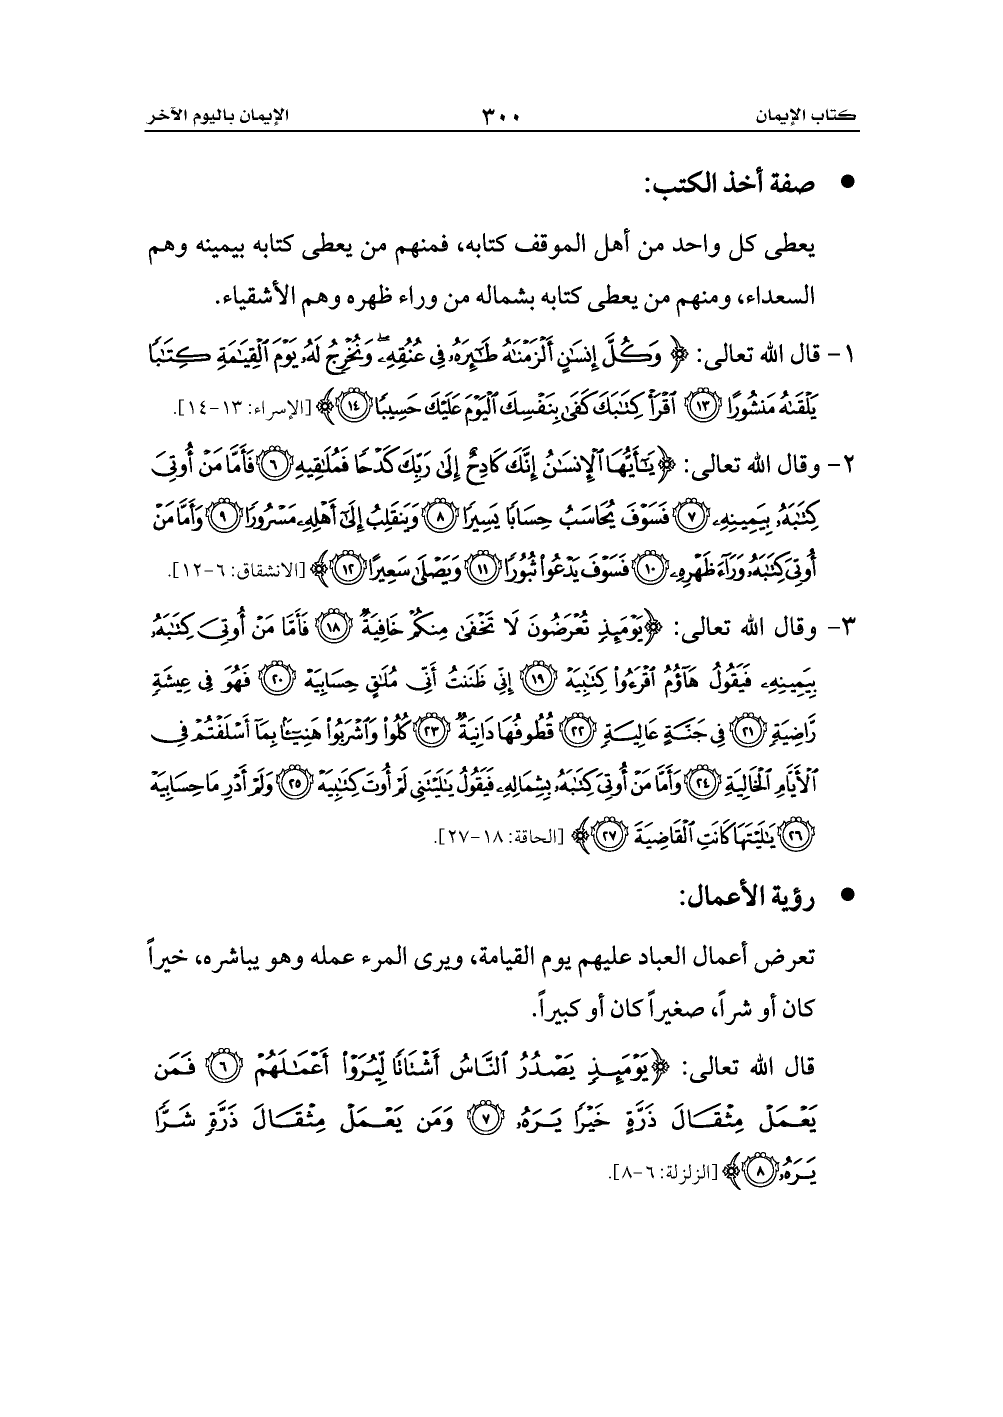 كتاب الإيمان ٣٠٠ الإيمان باليوم الآخر
• صفة أخذ الكتب:
يعطى كل واحد من أهل الموقف كتابه، فمنهم من يعطى كتابه بيمينه وهم
السعداء، ومنهم من يعطى كتابه بشماله من وراء ظهره وهم الأشقياء.
١- قال الله تعالى: ﴿ وَكُلَّ إِنسَٰنٍ أَلْزَمْنَٰهُ طَٰٓئِرَهُۥ فِي عُنُقِهِۦ ۖ وَنُخْرِجُ لَهُۥ يَوْمَ ٱلْقِيَٰمَةِ كِتَٰبًا
يَلْقَىٰهُ مَنشُورًا ۝١٣ ٱقْرَأْ كِتَٰبَكَ كَفَىٰ بِنَفْسِكَ ٱلْيَوْمَ عَلَيْكَ حَسِيبًا ۝١٤ ﴾ [الإسراء: ١٣-١٤].
٢- وقال الله تعالى: ﴿ يَٰٓأَيُّهَا ٱلْإِنسَٰنُ إِنَّكَ كَادِحٌ إِلَىٰ رَبِّكَ كَدْحًا فَمُلَٰقِيهِ ۝٦ فَأَمَّا مَنْ أُوتِيَ
كِتَٰبَهُۥ بِيَمِينِهِۦ ۝٧ فَسَوْفَ يُحَاسَبُ حِسَابًا يَسِيرًا ۝٨ وَيَنقَلِبُ إِلَىٰٓ أَهْلِهِۦ مَسْرُورًا ۝٩ وَأَمَّا مَنْ
أُوتِيَ كِتَٰبَهُۥ وَرَآءَ ظَهْرِهِۦ ۝١٠ فَسَوْفَ يَدْعُوا۟ ثُبُورًا ۝١١ وَيَصْلَىٰ سَعِيرًا ۝١٢ ﴾ [الانشقاق: ٦-١٢].
٣- وقال الله تعالى: ﴿ يَوْمَئِذٍ تُعْرَضُونَ لَا تَخْفَىٰ مِنكُمْ خَافِيَةٌ ۝١٨ فَأَمَّا مَنْ أُوتِيَ كِتَٰبَهُۥ
بِيَمِينِهِۦ فَيَقُولُ هَآؤُمُ ٱقْرَءُوا۟ كِتَٰبِيَهْ ۝١٩ إِنِّي ظَنَنتُ أَنِّي مُلَٰقٍ حِسَابِيَهْ ۝٢٠ فَهُوَ فِي عِيشَةٍ
رَّاضِيَةٍ ۝٢١ فِي جَنَّةٍ عَالِيَةٍ ۝٢٢ قُطُوفُهَا دَانِيَةٌ ۝٢٣ كُلُوا۟ وَٱشْرَبُوا۟ هَنِيٓـًٔا بِمَآ أَسْلَفْتُمْ فِي
ٱلْأَيَّامِ ٱلْخَالِيَةِ ۝٢٤ وَأَمَّا مَنْ أُوتِيَ كِتَٰبَهُۥ بِشِمَالِهِۦ فَيَقُولُ يَٰلَيْتَنِي لَمْ أُوتَ كِتَٰبِيَهْ ۝٢٥ وَلَمْ أَدْرِ مَا حِسَابِيَهْ
۝٢٦ يَٰلَيْتَهَا كَانَتِ ٱلْقَاضِيَةَ ۝٢٧ ﴾ [الحاقة: ١٨-٢٧].
• رؤية الأعمال:
تعرض أعمال العباد عليهم يوم القيامة، ويرى المرء عمله وهو يباشره، خيراً
كان أو شراً، صغيراً كان أو كبيراً.
قال الله تعالى: ﴿ يَوْمَئِذٍ يَصْدُرُ ٱلنَّاسُ أَشْتَاتًا لِّيُرَوْا۟ أَعْمَٰلَهُمْ ۝٦ فَمَن
يَعْمَلْ مِثْقَالَ ذَرَّةٍ خَيْرًا يَرَهُۥ ۝٧ وَمَن يَعْمَلْ مِثْقَالَ ذَرَّةٍ شَرًّا
يَرَهُۥ ۝٨ ﴾ [الزلزلة: ٦-٨].